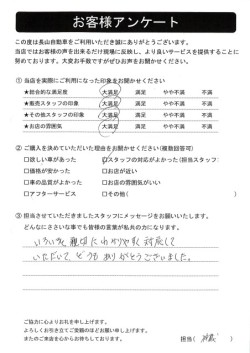 お客様アンケート
この度は長山自動車をご利用いただき誠にありがとうございます。
当店ではお客様の声を出来るだけ現場に反映し、より良いサービスを提供することに
努めております。大変お手数ですがぜひお声をお聞かせください。
① 当店を実際にご利用になった印象をお聞かせください
★総合的な満足度 大満足 満足 やや不満 不満
★販売スタッフの印象 大満足 満足 やや不満 不満
★その他スタッフの印象 大満足 満足 やや不満 不満
★お店の雰囲気 大満足 満足 やや不満 不満
② ご購入を決めていただいた理由をお聞かせください(複数回答可)
□欲しい車があった □スタッフの対応がよかった(担当スタッフ)
□価格が安かった □お店が近い
□車の品質がよかった □お店の雰囲気がいい
□アフターサービス □その他(
③ 担当させていただきましたスタッフにメッセージをお願いいたします。
どんなにささいな事でも皆様の言葉が私共の力になります。
いろいろ親切にわかりやすく対応して
いただいて どうも ありがとうございました。
ご協力に心よりお礼を申し上げます。
よろしくお引き立てご愛顧のほどお願い申し上げます。
またのご来店を心からお待ちしております。
担当( )